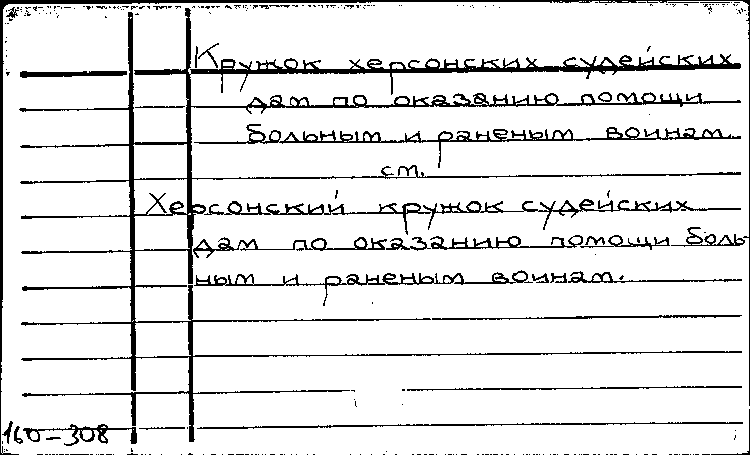 Кружок херсонских судейских
дам по оказанию помощи
больным и раненым воинам
см.
Херсонский кружок судейских
дам по оказанию помощи боль-
ным и раненым воинам.
160-308